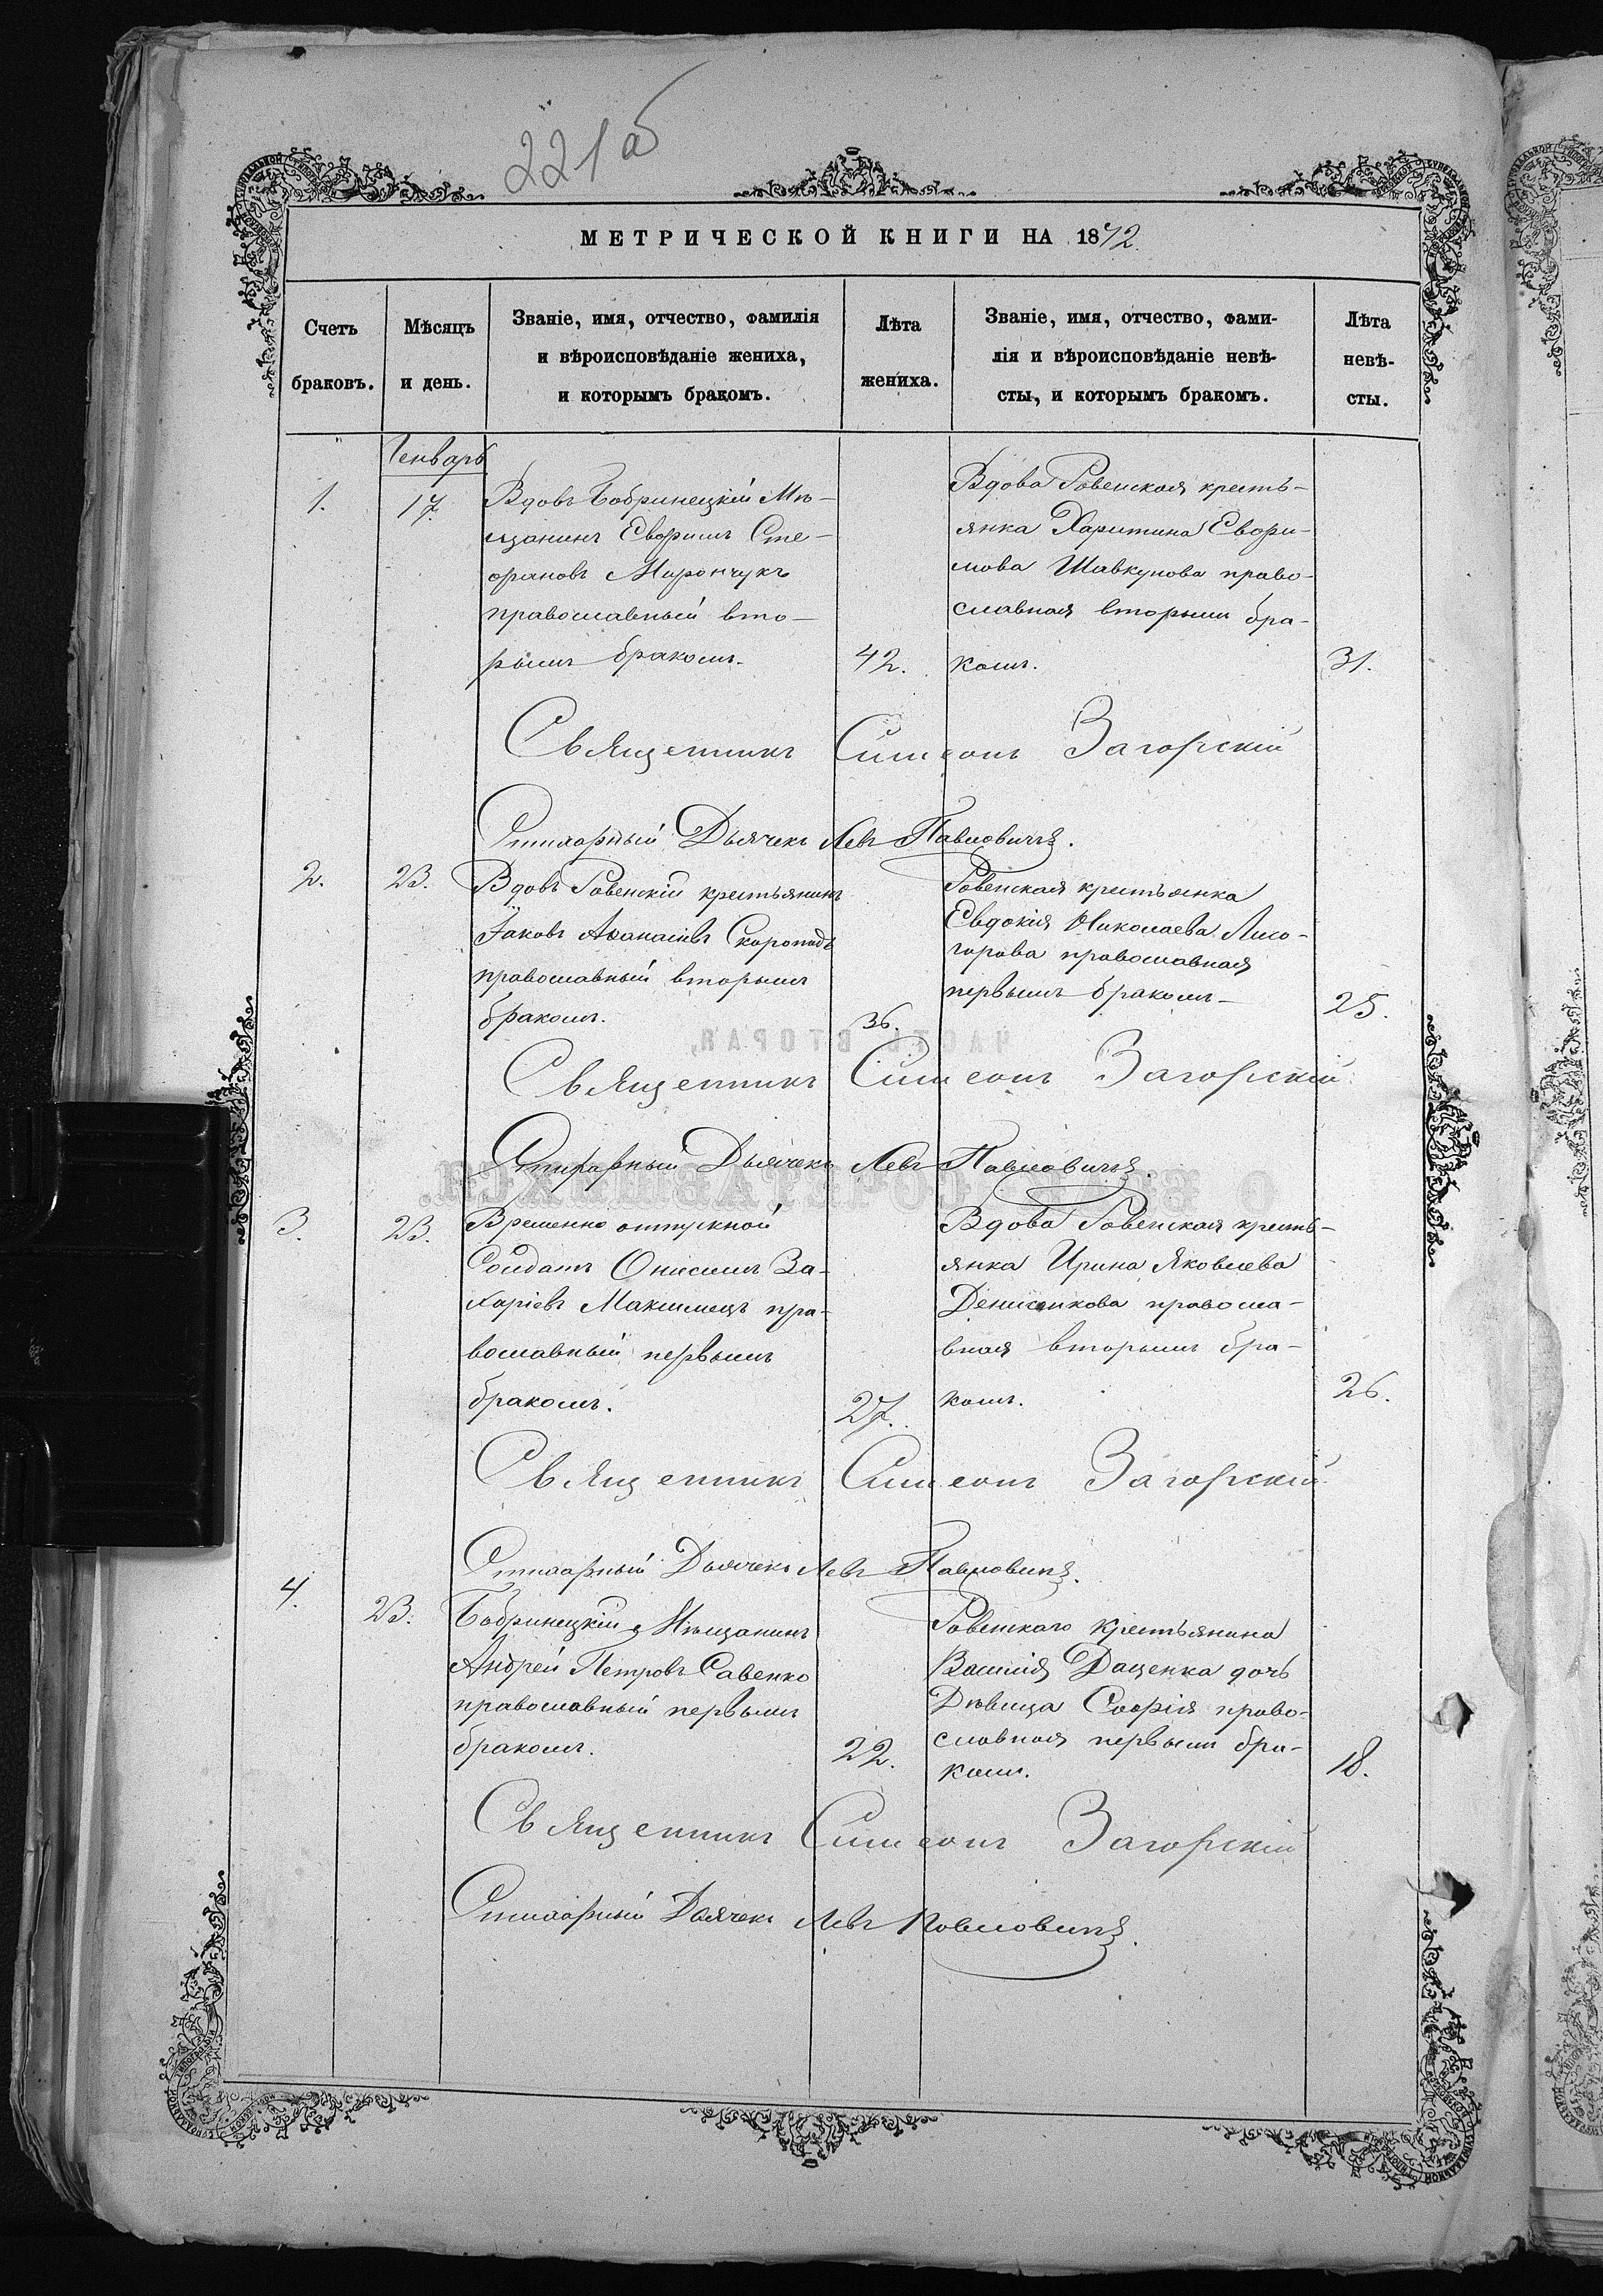 221 об
МЕТРИЧЕСКОЙ КНИГИ НА 1872.
Счетъ браковъ.
Мѣсяцъ и день.
Званіе, имя, отчество, фамилія
и вѣроисповѣданіе жениха,
и которымъ бракомъ.
Лѣта жениха.
Званіе, имя, отчество, фами-
лія и вѣроисповѣданіе невѣ-
сты, и которымъ бракомъ.
Лѣта невѣ-
сты.
Генварь
1.
17.
Вдовъ Бобринецкій Мѣ-
щанинъ Евфимъ Сте-
фановъ Мирончукъ
православный вто-
рымъ бракомъ.
42.
Вдова Ровенская кресть-
янка Харитина Евфи-
мова Шавкунова право-
славная вторымъ бра-
комъ.
31.
Священникъ Симеонъ Загорскій
Дьячекъ Левъ Павловичъ.
2.
23.
Вдовъ Ровенскій крестьянинъ
Іаковъ Аѳанасіевъ Скороподъ
православный вторымъ
бракомъ.
36.
Ровенская крестьянка
Евдокія Николаева Лисо-
горова православная
первымъ бракомъ
25.
Священникъ Симеонъ Загорскій
Дьячекъ Левъ Павловичъ.
3.
23.
Временно отпускной
Солдатъ Онисимъ За-
харіевъ Максимецъ пра-
вославный первымъ
бракомъ.
27.
Вдова Ровенская кресть-
янка Ирина Яковлева
Денисенкова правосла-
вная вторымъ бра-
комъ.
26.
Священникъ Симеонъ Загорскій
Дьячекъ Левъ Павловичъ.
4.
23.
Бобринецкій Мѣщанинъ
Андрей Петровъ Савенко
православный первымъ
бракомъ.
22.
Ровенскаго крестьянина
Василія Даценка дочь
Дѣвица Софія право-
славная первымъ бра-
комъ.
18.
Священникъ Симеонъ Загорскій
Дьячекъ Левъ Павловичъ.